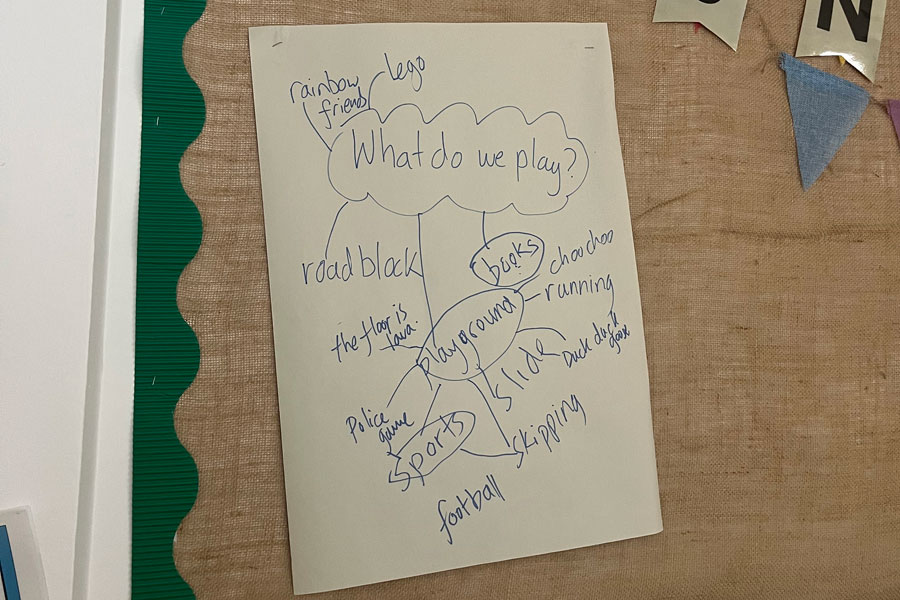 N
rainbow
friends
lego
What do we play?
road block
books
choo choo
running
the floor is
lava.
playground
Duck duck
goose
slide
Police
game
sports
skipping
football